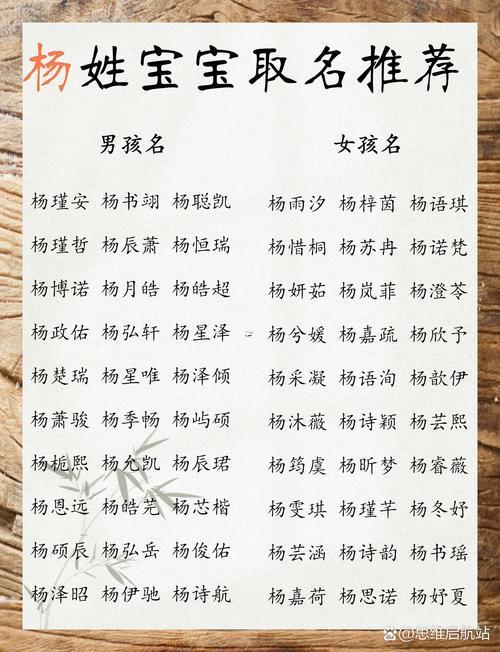 杨姓宝宝取名推荐
男孩名
杨瑾安 杨书翊 杨聪凯
杨瑾哲 杨辰萧 杨恒瑞
杨博诺 杨月皓 杨皓超
杨政佑 杨弘轩 杨星泽
杨楚瑞 杨星唯 杨泽倾
杨萧骏 杨季畅 杨屿硕
杨栀熙 杨允凯 杨辰珺
杨恩远 杨皓芒 杨芯楷
杨硕辰 杨弘岳 杨俊佑
杨泽昭 杨伊驰 杨诗航
女孩名
杨雨汐 杨梓茵 杨语琪
杨惜桐 杨苏冉 杨诺梵
杨妍茹 杨岚菲 杨澄苓
杨兮媛 杨嘉疏 杨欣予
杨采凝 杨语洵 杨歆伊
杨沐薇 杨诗颖 杨芸熙
杨筠虞 杨昕梦 杨睿薇
杨雯琪 杨瑾芊 杨冬妤
杨芸涵 杨诗韵 杨书瑶
杨嘉荷 杨思诺 杨妤夏
@思维启航站